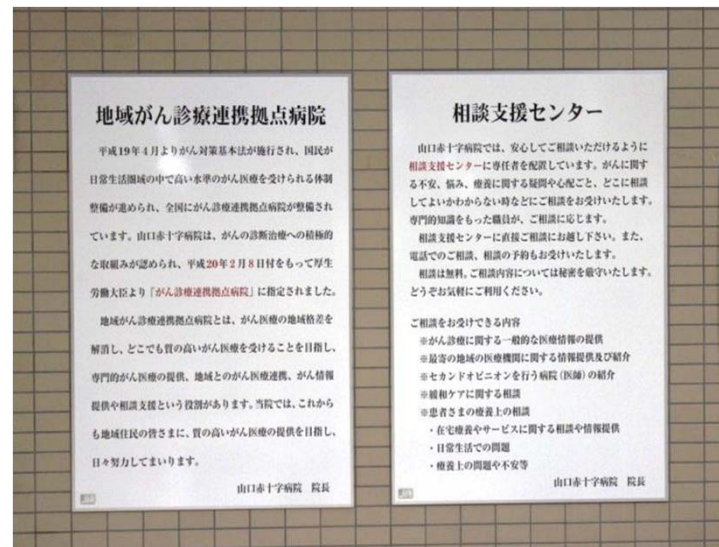 地域がん診療連携拠点病院
平成19年4月よりがん対策基本法が施行され、国民が
日常生活圏域の中で高い水準のがん医療を受けられる体制
整備が進められ、全国にがん診療連携拠点病院が整備され
ています。山口赤十字病院は、がんの診断治療への積極的
な取組みが認められ、平成20年2月8日付をもって厚生
労働大臣より「がん診療連携拠点病院」に指定されました。
地域がん診療連携拠点病院とは、がん医療の地域格差を
解消し、どこでも質の高いがん医療を受けることを目指し、
専門的がん医療の提供、地域とのがん医療連携、がん情報
提供や相談支援という役割があります。当院では、これから
も地域住民の皆さまに、質の高いがん医療の提供を目指し、
日々努力してまいります。
山口赤十字病院 院長
相談支援センター
山口赤十字病院では、安心してご相談いただけるように
相談支援センターに専任者を配置しています。がんに関す
る不安、悩み、療養に関する疑問や心配ごと、どこに相談
してよいかわからない時などにご相談をお受けいたします。
専門的知識をもった職員が、ご相談に応じます。
相談支援センターに直接ご相談にお越し下さい。また、
電話でのご相談、相談の予約もお受けいたします。
相談は無料。ご相談内容については秘密を厳守いたします。
どうぞお気軽にご利用ください。
ご相談をお受けできる内容
※がん診療に関する一般的な医療情報の提供
※最寄の地域の医療機関に関する情報提供及び紹介
※セカンドオピニオンを行う病院(医師)の紹介
※緩和ケアに関する相談
※患者さまの療養上の相談
・在宅療養やサービスに関する相談や情報提供
・日常生活での問題
・療養上の問題や不安等
山口赤十字病院 院長